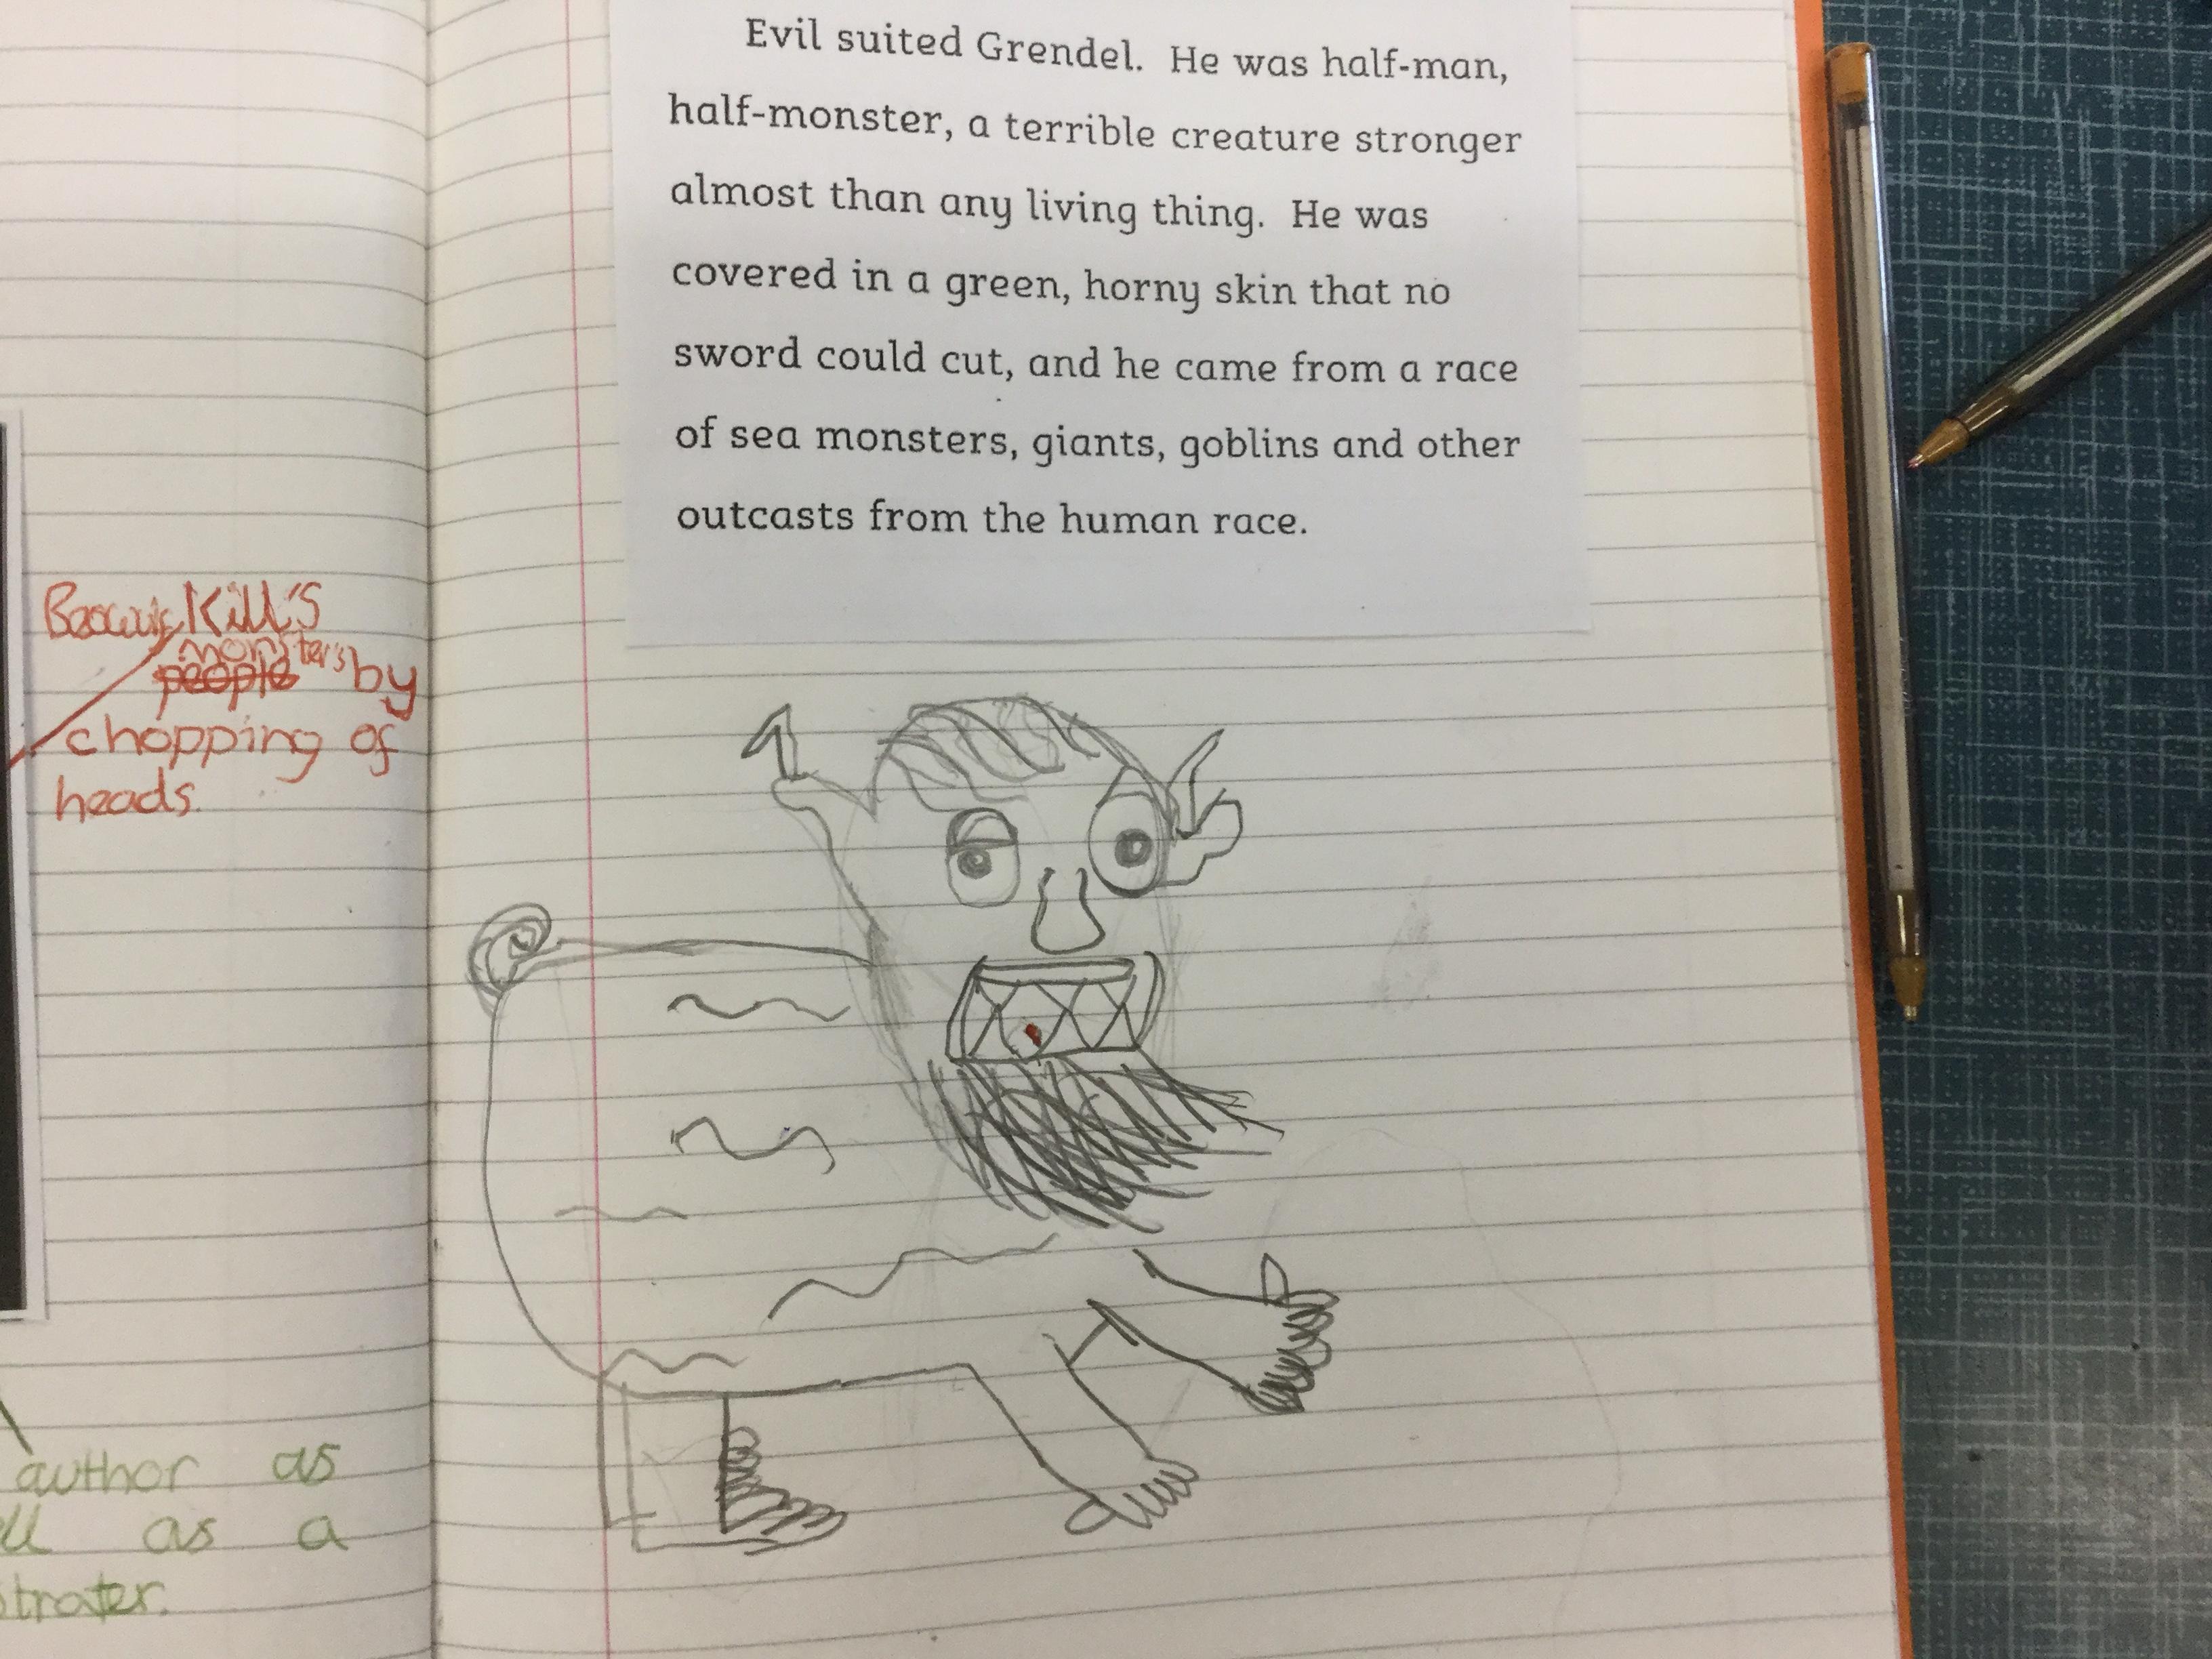 Evil suited Grendel. He was half-man,
half-monster, a terrible creature stronger
almost than any living thing. He was
covered in a green, horny skin that no
sword could cut, and he came from a race
of sea monsters, giants, goblins and other
outcasts from the human race.
Kill's
monster's
people by
chopping of
heads.
author as
as a